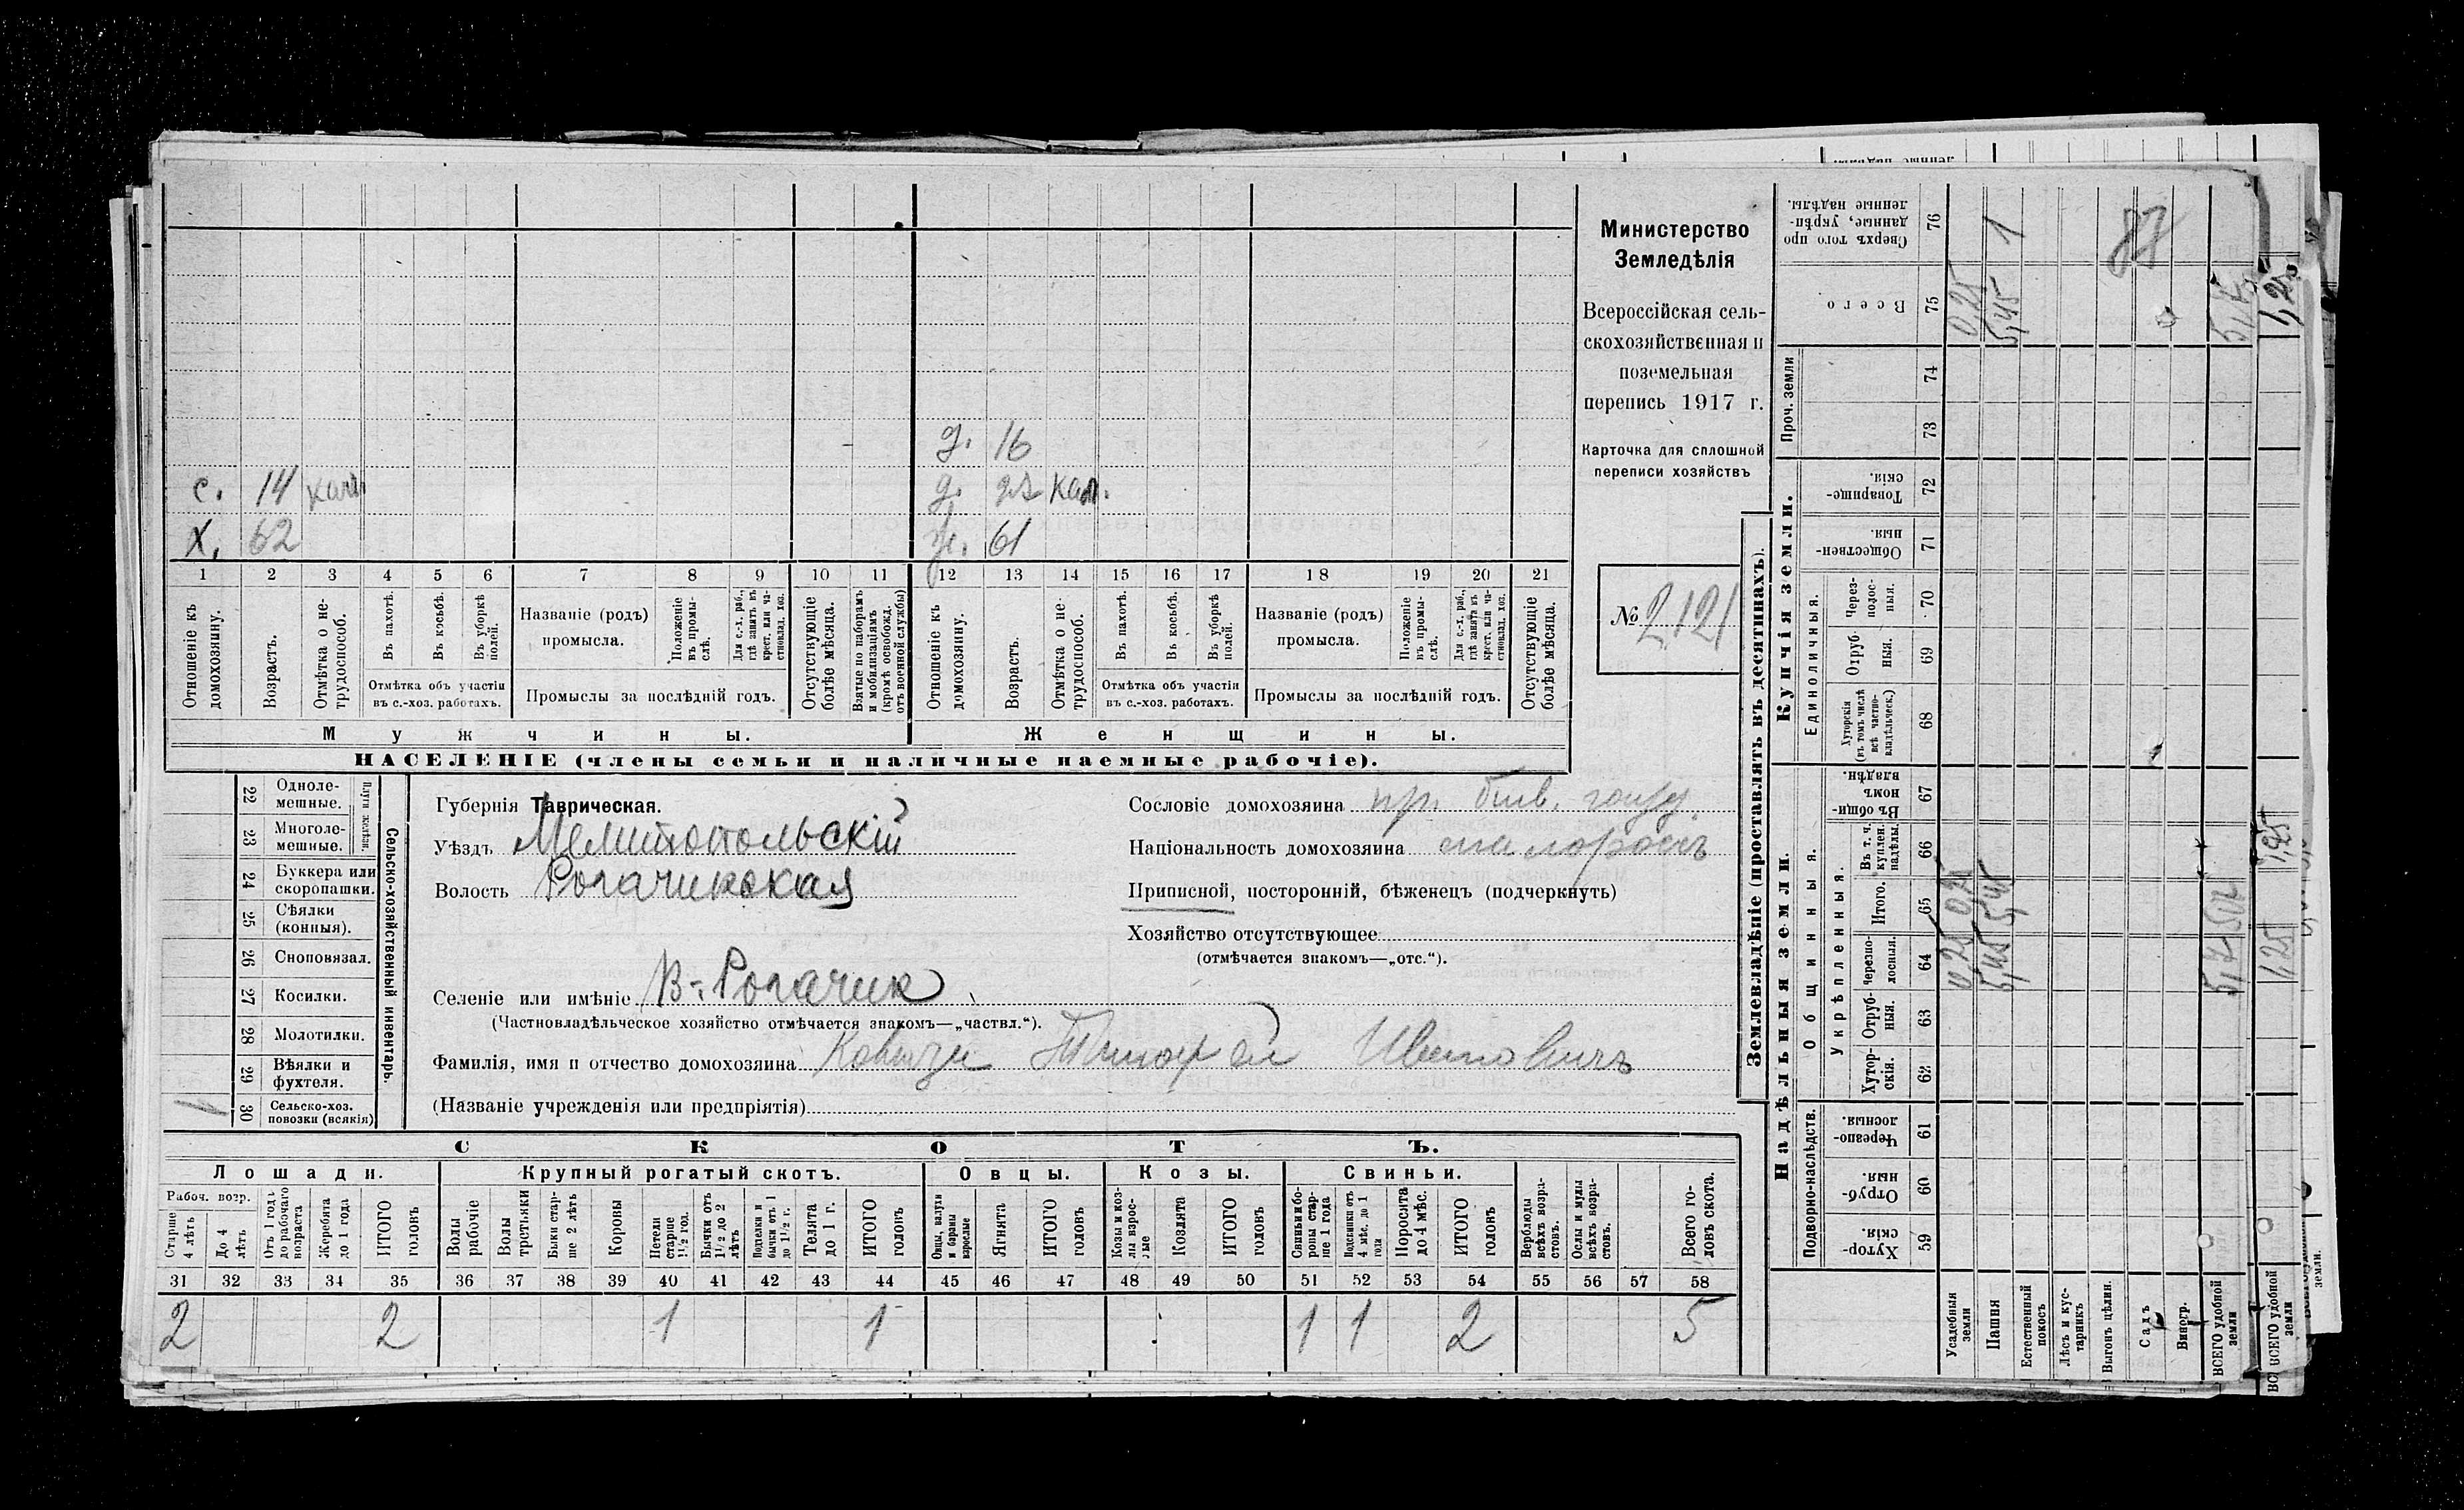 д. 16
с. 14 кал. д. 27 кал.
х. 62 ж. 61
1 2 3 4 5 6 7 8 9 10 11 12 13 14 15 16 17 18 19 20 21
Отношеніе къ домохозяину.
Возрастъ.
Отмѣтка о нетрудоспособ.
Въ пахотѣ.
Въ косьбѣ.
Въ уборкѣ полей.
Отмѣтка объ участіи въ с.-хоз. работахъ.
Названіе (родъ) промысла.
Положеніе въ промыслѣ.
Для с.-х. раб., гдѣ занятъ въ крест. или частновлад. хоз.
Промыслы за послѣдній годъ.
Отсутствующіе болѣе мѣсяца.
Взятые по наборамъ и мобилизаціямъ (кромѣ освобожд. отъ военной службы)
Отношеніе къ домохозяину.
Возрастъ.
Отмѣтка о нетрудоспособ.
Въ пахотѣ.
Въ косьбѣ.
Въ уборкѣ полей.
Отмѣтка объ участіи въ с.-хоз. работахъ.
Названіе (родъ) промысла.
Положеніе въ промыслѣ.
Для с.-х. раб., гдѣ занята въ крест. или частновлад. хоз.
Промыслы за послѣдній годъ.
Отсутствующіе болѣе мѣсяца.
Мужчины. Женщины.
НАСЕЛЕНІЕ (члены семьи и наличные наемные рабочіе).
Министерство
Земледѣлія
Всероссійская сель-
скохозяйственная и
поземельная
перепись 1917 г.
Карточка для сплошной
переписи хозяйствъ
№ 2121
Сельско-хозяйственный инвентарь.
Плуги желѣзн.
22 Одноле-
мешные.
23 Многоле-
мешные.
24 Буккера или
скоропашки.
25 Сѣялки
(конныя).
26 Сноповязал.
27 Косилки.
28 Молотилки.
29 Вѣялки и
фухтеля.
1 30 Сельско-хоз.
повозки (всякія)
Губернія Таврическая.
Уѣздъ Мелитопольскій
Волость Рогачикская
Селеніе или имѣніе В-Рогачик
(Частновладѣльческое хозяйство отмѣчается знакомъ—„частвл.“).
Фамилія, имя и отчество домохозяина Тимофей Ивановичъ
(Названіе учрежденія или предпріятія)
Сословіе домохозяина кр. быв. госуд.
Національность домохозяина малороссъ
Приписной, посторонній, бѣженецъ (подчеркнуть)
Хозяйство отсутствующее
(отмѣчается знакомъ—„отс.“).
СКОТЪ.
Лошади. Крупный рогатый скотъ. Овцы. Козы. Свиньи.
Рабоч. возр.
Старше 4 лѣтъ
До 4 лѣтъ
Отъ 1 года до рабочаго возраста
Жеребята до 1 года
ИТОГО головъ
Волы рабочіе
Волы третьяки
Быки старше 2 лѣтъ
Коровы
Нетели старше 1½ год.
Бычки отъ 1½ до 2 лѣтъ
Подтелки и бычки отъ 1 до 1½ г.
Телята до 1 г.
ИТОГО головъ
Овцы, валухи и бараны взрослые
Ягнята
ИТОГО головъ
Козы и козлы взрослые
Козлята
ИТОГО головъ
Свиньи и боровы старше 1 года
Подсвинки отъ 4 мѣс. до 1 года
Поросята до 4 мѣс.
ИТОГО головъ
Верблюды всѣхъ возрастовъ.
Ослы и мулы всѣхъ возрастовъ.
Всего головъ скота.
31 32 33 34 35 36 37 38 39 40 41 42 43 44 45 46 47 48 49 50 51 52 53 54 55 56 57 58
2 2 1 1 1 1 2 5
Землевладѣніе (проставлять въ десятинахъ).
Купчія земли.
Надѣльныя земли.
Проч. земли
Единоличныя.
Общинныя.
Укрѣпленныя.
Подворно-наслѣдств.
Сверхъ того проданные, укрѣпленные надѣлы. 76
Всего 75
74
73
Товарищескія. 72
Общественныя. 71
Черезполосныя. 70
Отрубныя. 69
Хуторскія (въ томъ числѣ всѣ частновладѣльческ.) 68
Въ общинномъ владѣн. 67
Въ т. ч. куплен. надѣлы. 66
Итого. 65
Черезполосныя. 64
Отрубныя. 63
Хуторскія. 62
Черезполосныя. 61
Отрубныя. 60
Хуторскія. 59
Усадебныя земли 0,25 0,25 0,25
Пашня 5,45 5,45 5,45 1
Естественный покосъ
Лѣсъ и кустарникъ
Выгонъ цѣлин.
Садъ
Виногр.
ВСЕГО удобной земли
ВСЕГО удобной земли 1,25 1,25